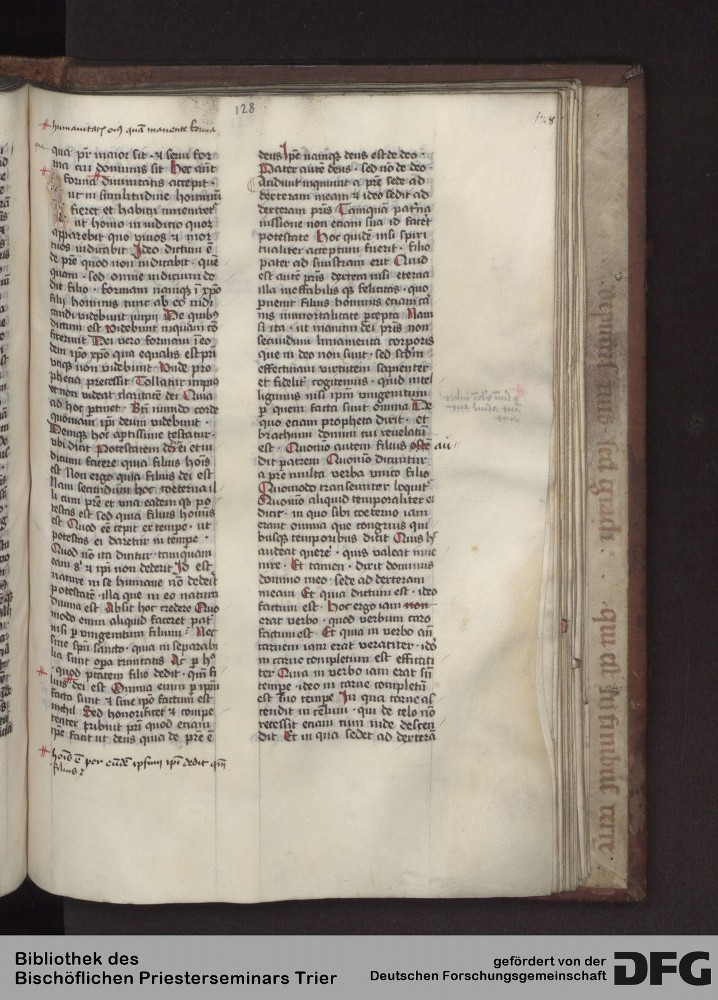 128
humanitatis eius quam manente forma
qua pr̄ maior sit · et serui for
ma cui dominus sit Hoc aūt
forma diuinitatis accepit ·
ut in similitudine hominum
fieret et habitu inueniretur
ut homo in iudicio quoque
apparebit quo uiuos et mor
tuos iudicabit Ideo dictum ē
de pr̄e quod non iudicabit · quē
quam · sed omne iudicium de
dit filio · formam namque ī xp̄o
filii hominis tunc ab eo iudi
candi uidebunt impii De quibus
dictum est Videbunt inquam cō
fixerunt Dei uero formam ī eo
dem ip̄o xp̄o qua equalis est pri
utique non uidebunt Vnde pro
phetia precessit Tollatur impius
ut non uideat claritatē dei Quia
ad hoc ptinet · Bn̄i mundo corde
quoniam ip̄i deum uidebunt ·
Denique hoc aptissime testatur ·
ubi dicit Potestatem dedit ei et iu
dicium facere quia filius hoīs
est Non ergo quia filius dei est
Nam secundum hoc coeterna il
li cum pr̄e et una eadem que po
testas est sed quia filius hominis
est Quod eē cepit ex tempe · ut
potestas ei daretur in tempe ·
Quod nō ita dicitur tamquam
eam sibi et ip̄i non dederit Id est
nature in se humane nō dedit
potestatē illa que in eo natura
diuina est Absit hoc credere Quo
modo enim aliquid faceret pat
nisi p unigenitum filium Nec
sine sp̄u sancto · quia inseparabi
lia sunt opa trinitatis Ac p hoc
quod ptatem filio dedit · quī fi
lius dei est Omnia enim p ip̄m
facta sunt et sine ip̄o factum est
nichil Sed honorificet et compe
tenter tribuit pr̄i quod etiam
ipe facit ut deus quia de pr̄e ē
hoīs ē per eūdē ipsum ip̄i dedit quī
filius
128
deus Ip̄e namque deus est de deo ·
Pater autē deus · sed nō de deo ·
Audiuit inquiunt a pr̄e sede ad
dexteram meam et ideo sedit ad
dexteram pr̄is Tamquam pat̄na
iussione non etiam sua id facet
potestate Hoc quidē nisi spiri
tualiter acceptum fuerit · filio
pater ad sinistram erit Quid
est autē pr̄is dextera nisi eterna
illa ineffabilis que felicitas · quo
puenit filius hominis etiam ca
nis inmortalitate pcepta Nam
si ita · ut manum dei pr̄is non
secundum liniamenta corporis
que in deo non sunt · sed scdm
effectiuam uirtutem sapienter
et fideliter cogitemus · quid intel
ligimus nisi ip̄m unigenitum
p quem facta sunt omnia De
quo etiam propheta dixit · et
brachium domini cui reuelatum
est · Quomodo autem filius au
dit patrem Quomodo dicuntur
a pr̄e multa uerba unico filio
Quomodo transeunter loquitur
Quomodo aliquid temporaliter ei
dicit · in quo sibi coeterno iam
erant omnia que congruis qui
busque temporibus dixit Quis hoc
audeat querere · quis ualeat inue
nire · Et tamen · dixit dominus
domino meo · sede ad dexteram
meam Et quia dictum est · ideo
factum est · Hoc ergo iam non
erat uerbo · quod uerbum caro
factum est · Et quia in uerbo añ
carnem iam erat ueraciter · ido
in carne completum est efficaci
ter Quia in uerbo iam erat sn̄
tempe · ideo in carne completū
est suo tempe In qua carne as
cendit in celum · qui de celo nō
recessit etiam cum inde descen
dit Et in qua sedet ad dextera
Bibliothek des
Bischöflichen Priesterseminars Trier
gefördert von der
Deutschen Forschungsgemeinschaft
DFG